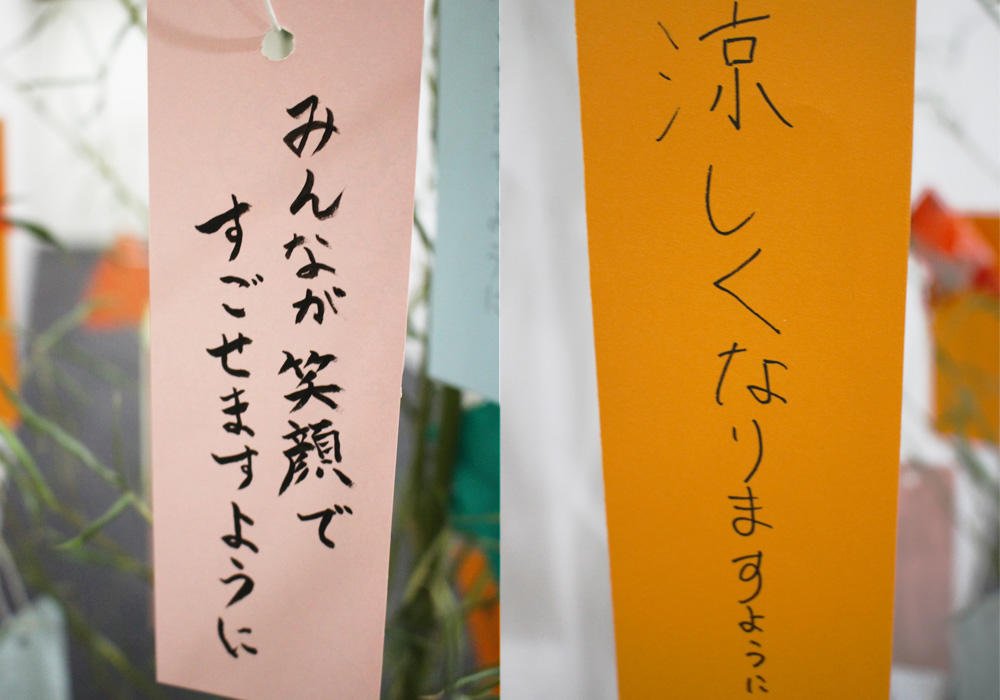 みんなが笑顔で
すごせますように
涼しくなりますように